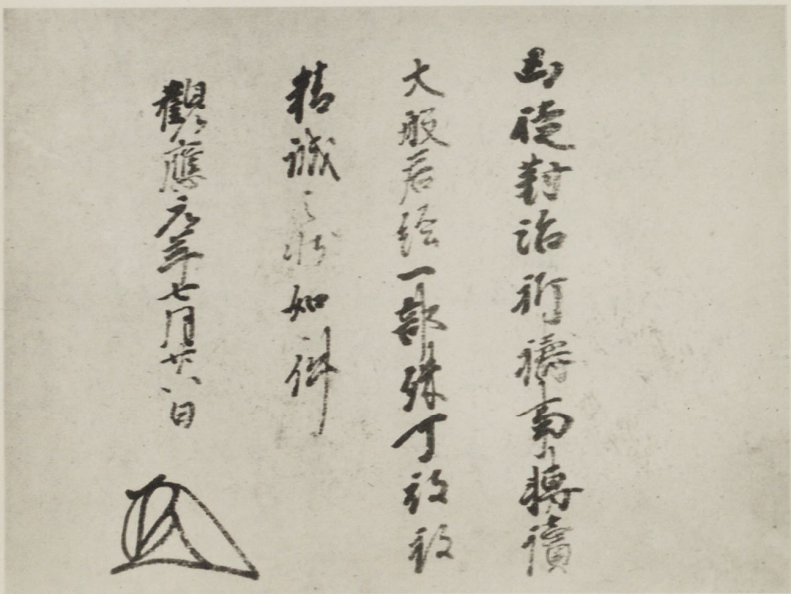 凶徒對治祈禱事轉讀
大般若経一部殊可被致
精誠之状如件
觀應元年七月廿八日